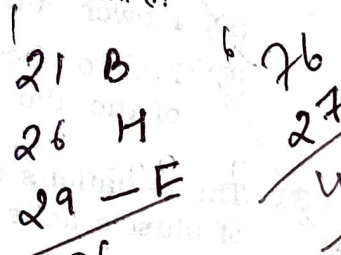 21 B
26 H
29 – F
6 76
27